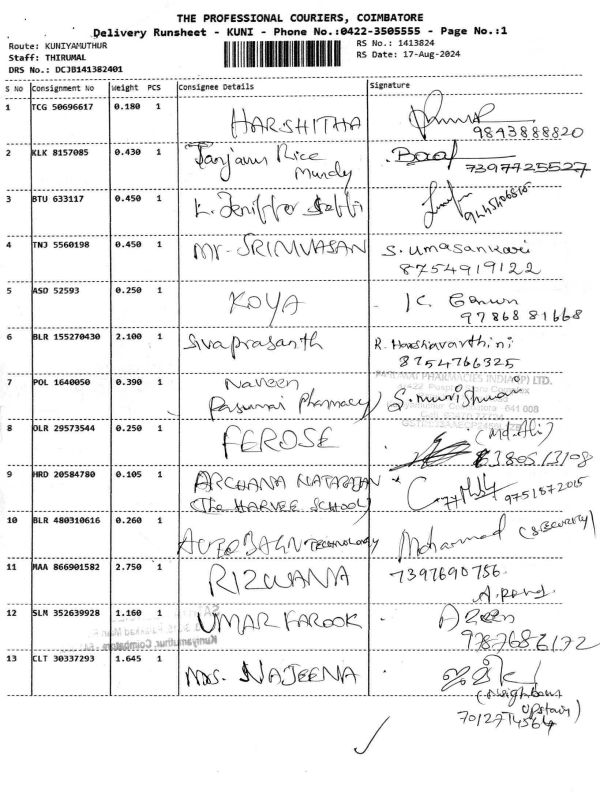 THE PROFESSIONAL COURIERS, COIMBATORE
Delivery Runsheet - KUNI - Phone No.:0422-3505555 - Page No.:1
Route: KUNIYAMUTHUR
RS No.: 1413824
Staff: THIRUMAL
RS Date: 17-Aug-2024
DRS No.: DCJB141382401
S No Consignment No Weight PCS Consignee Details Signature
1 TCG 50696617 0.180 1 HARSHITHA
9843888820
2 KLK 8157085 0.430 1 Tanjavur Rice
Mundy
7397725527
3 BTU 633117 0.450 1 L. Jeniffer
4 TNJ 5560198 0.450 1 Mr. SRINIVASAN S. Umasankari
8754919122
5 ASD 52593 0.250 1 KOYA K.
97868 81668
6 BLR 155270430 2.100 1 Sivaprasanth R. Harshavarthini
8754766325
7 POL 1640050 0.390 1 Naveen
PHARMACIES INDIA (P) LTD.
(Pasumai Pharmacy) S. Munishwari
641 008
8 OLR 29573544 0.250 1 FEROSE (Md. Ali)
6380513108
9 HRD 20584780 0.105 1 ARCHANA NATARAJAN
(The HARVEE SCHOOL) 9751572015
10 BLR 480310616 0.260 1 AUTOBAHN TECHNOLOGY Mohammad (SECURITY)
11 MAA 866901582 2.750 1 RIZWANA 7397690756
12 SLM 352639928 1.160 1 UMAR FAROOK
9787686172
Kuniyamuthur, Coimbatore
13 CLT 30337293 1.645 1 Mrs. NAJEENA
(Neighbour
Upstair)